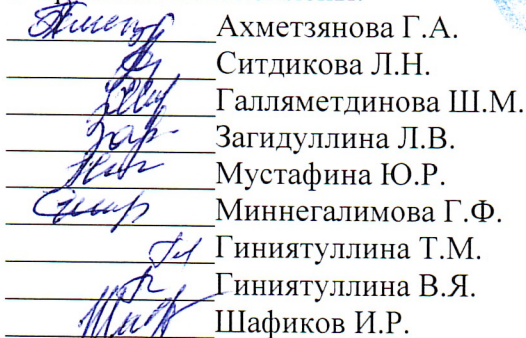 Ахметзянова Г.А.
Ситдикова Л.Н.
Галляметдинова Ш.М.
Загидуллина Л.В.
Мустафина Ю.Р.
Миннегалимова Г.Ф.
Гиниятуллина Т.М.
Гиниятуллина В.Я.
Шафиков И.Р.